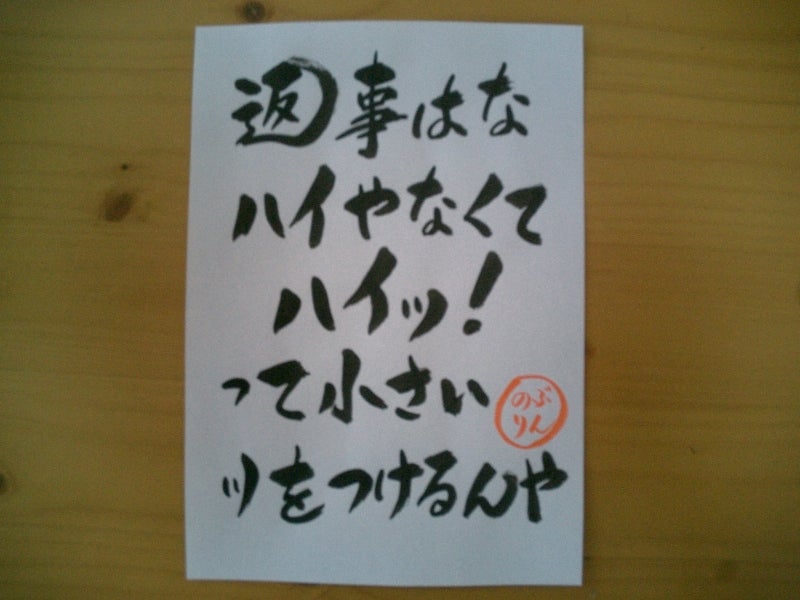 返事はな
ハイやなくて
ハイッ!
って小さい
ツをつけるんや
のぶ
りん